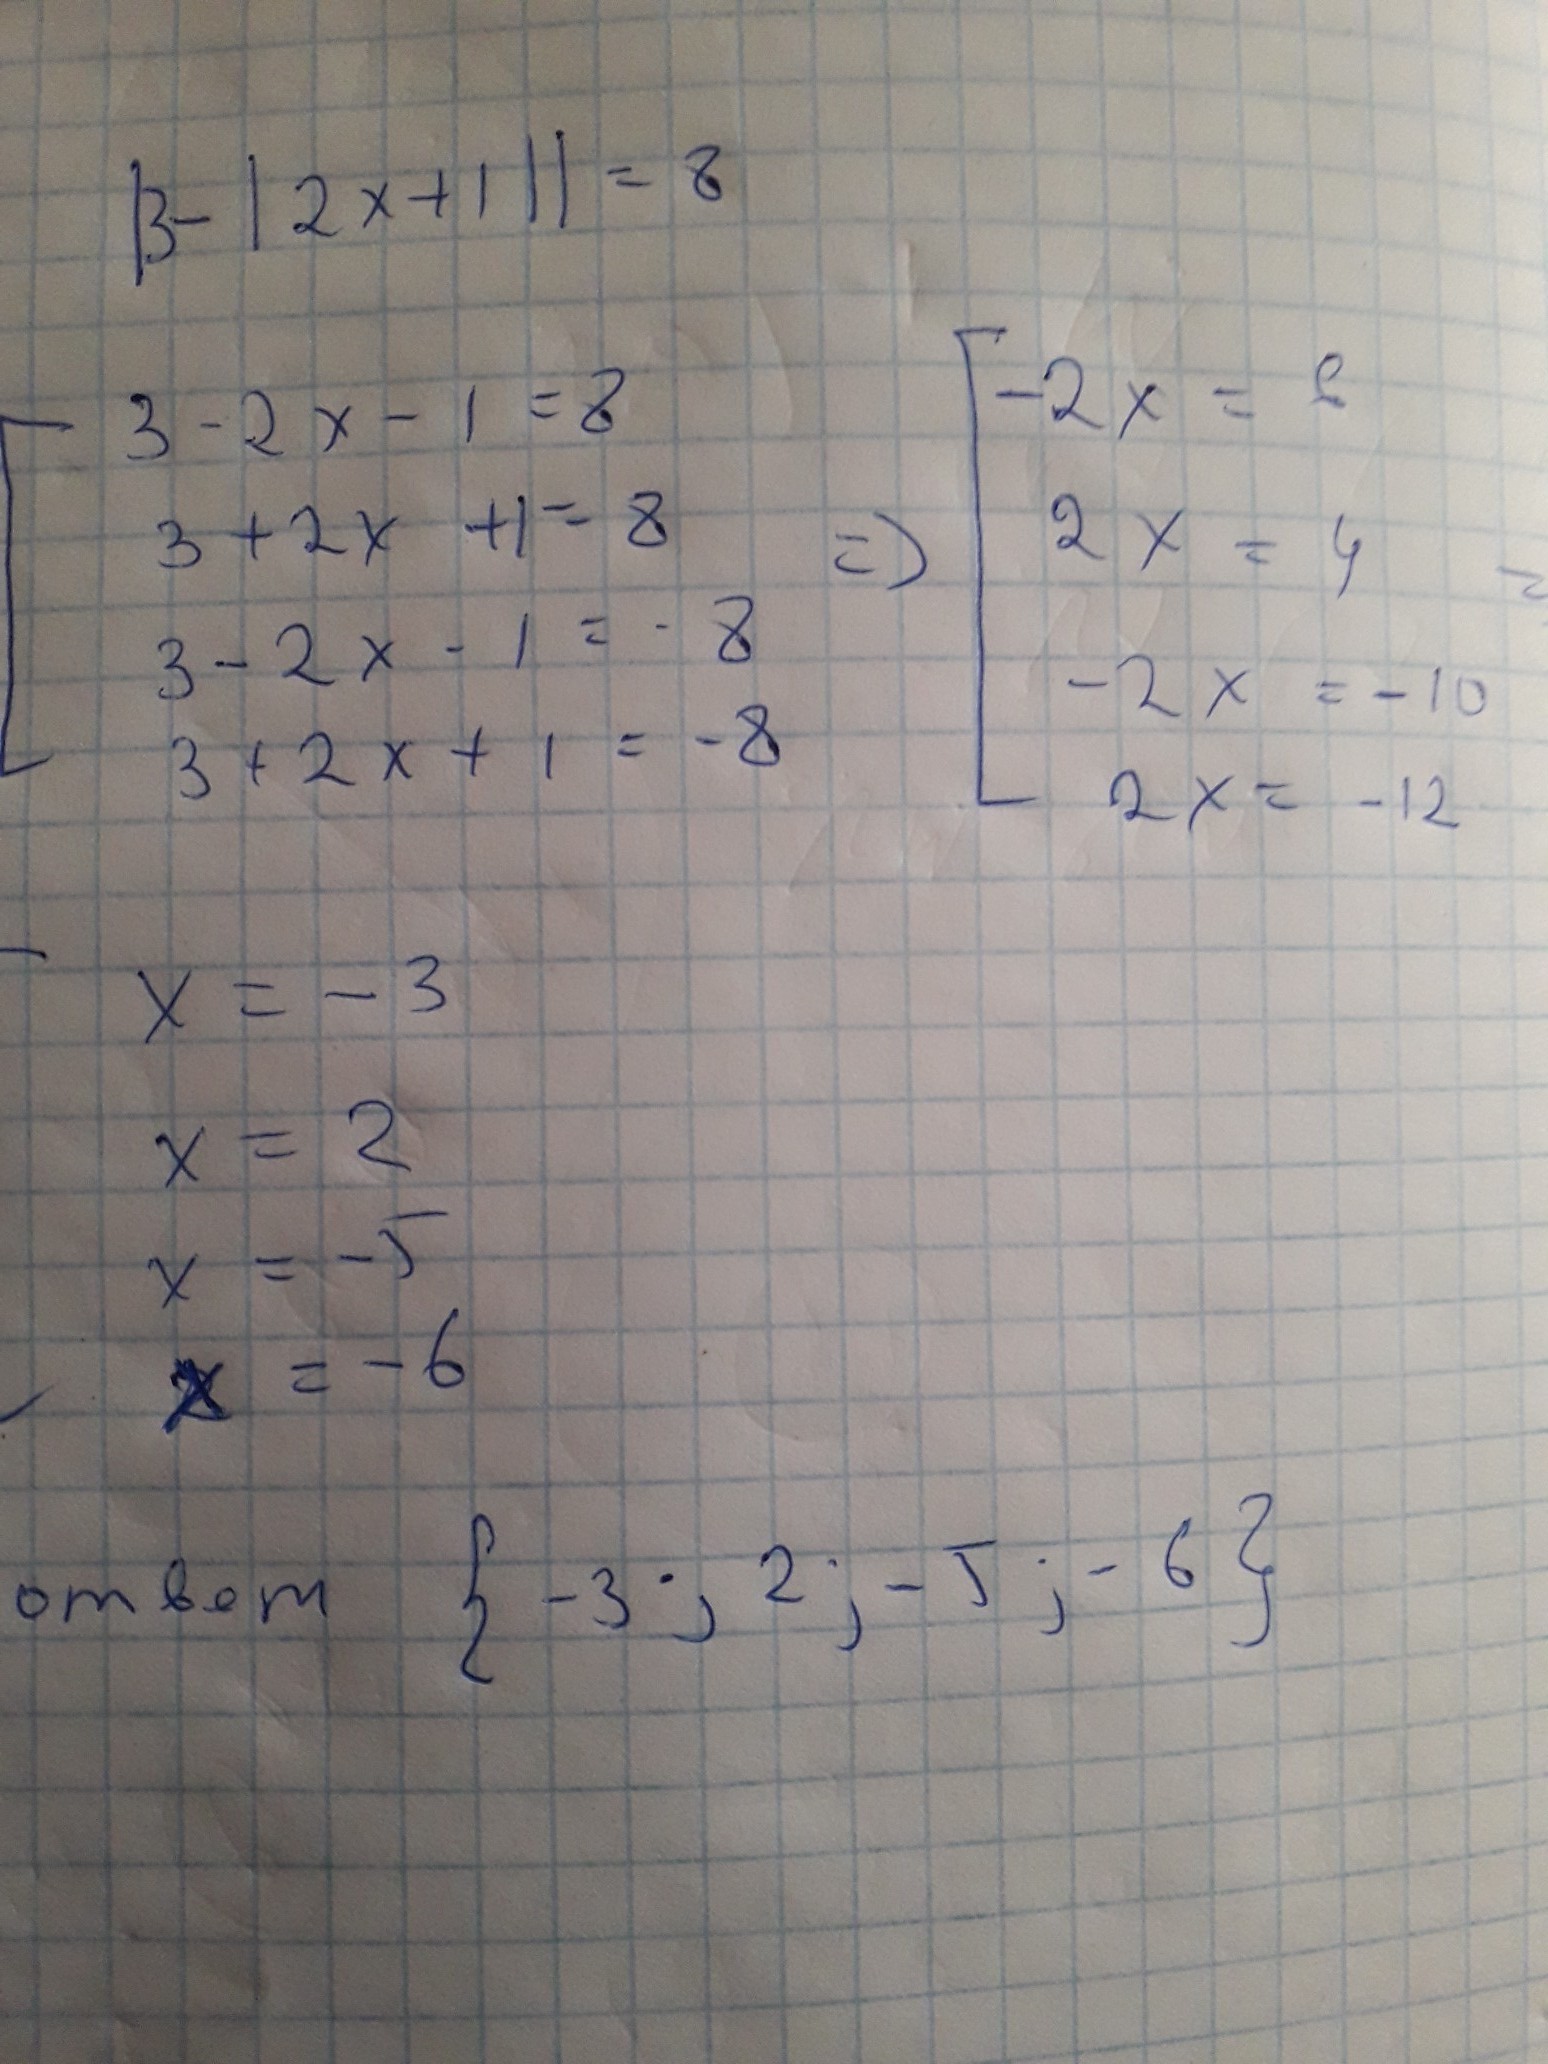 |3-|2x+1||=8
3-2x-1=8
3+2x+1=8
3-2x-1=-8
3+2x+1=-8
=>
-2x=
2x=4
-2x=-10
2x=-12
=
x=-3
x=2
x=-5
x=-6
ответ {-3; 2; -5; -6}